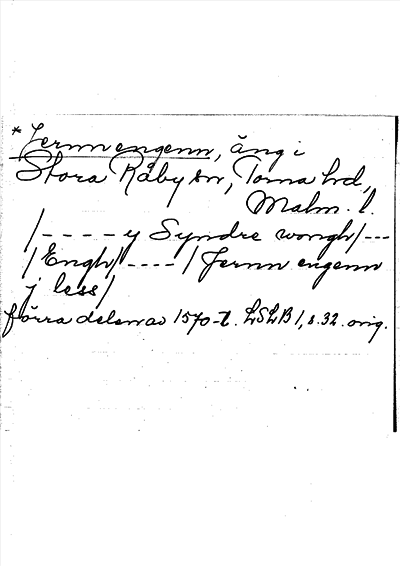 * Jernn engenn, äng i
Stora Råby sn, Torna hd,
Malm. l.
/ - - - - y Syndre wongh / - - -
/ Engh / - - - - / Jernn engenn
j less /
förra delen av 1570-t. LSLB 1, s. 32. orig.